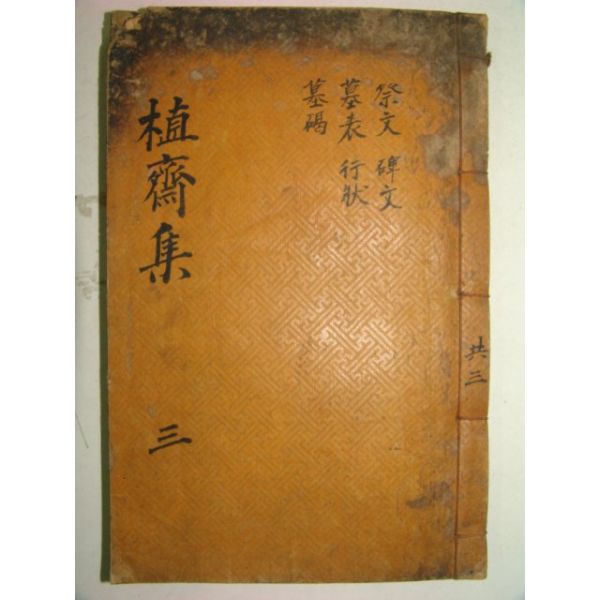 共三
祭文 碑文
墓表 行狀
墓碣
植齋集 三